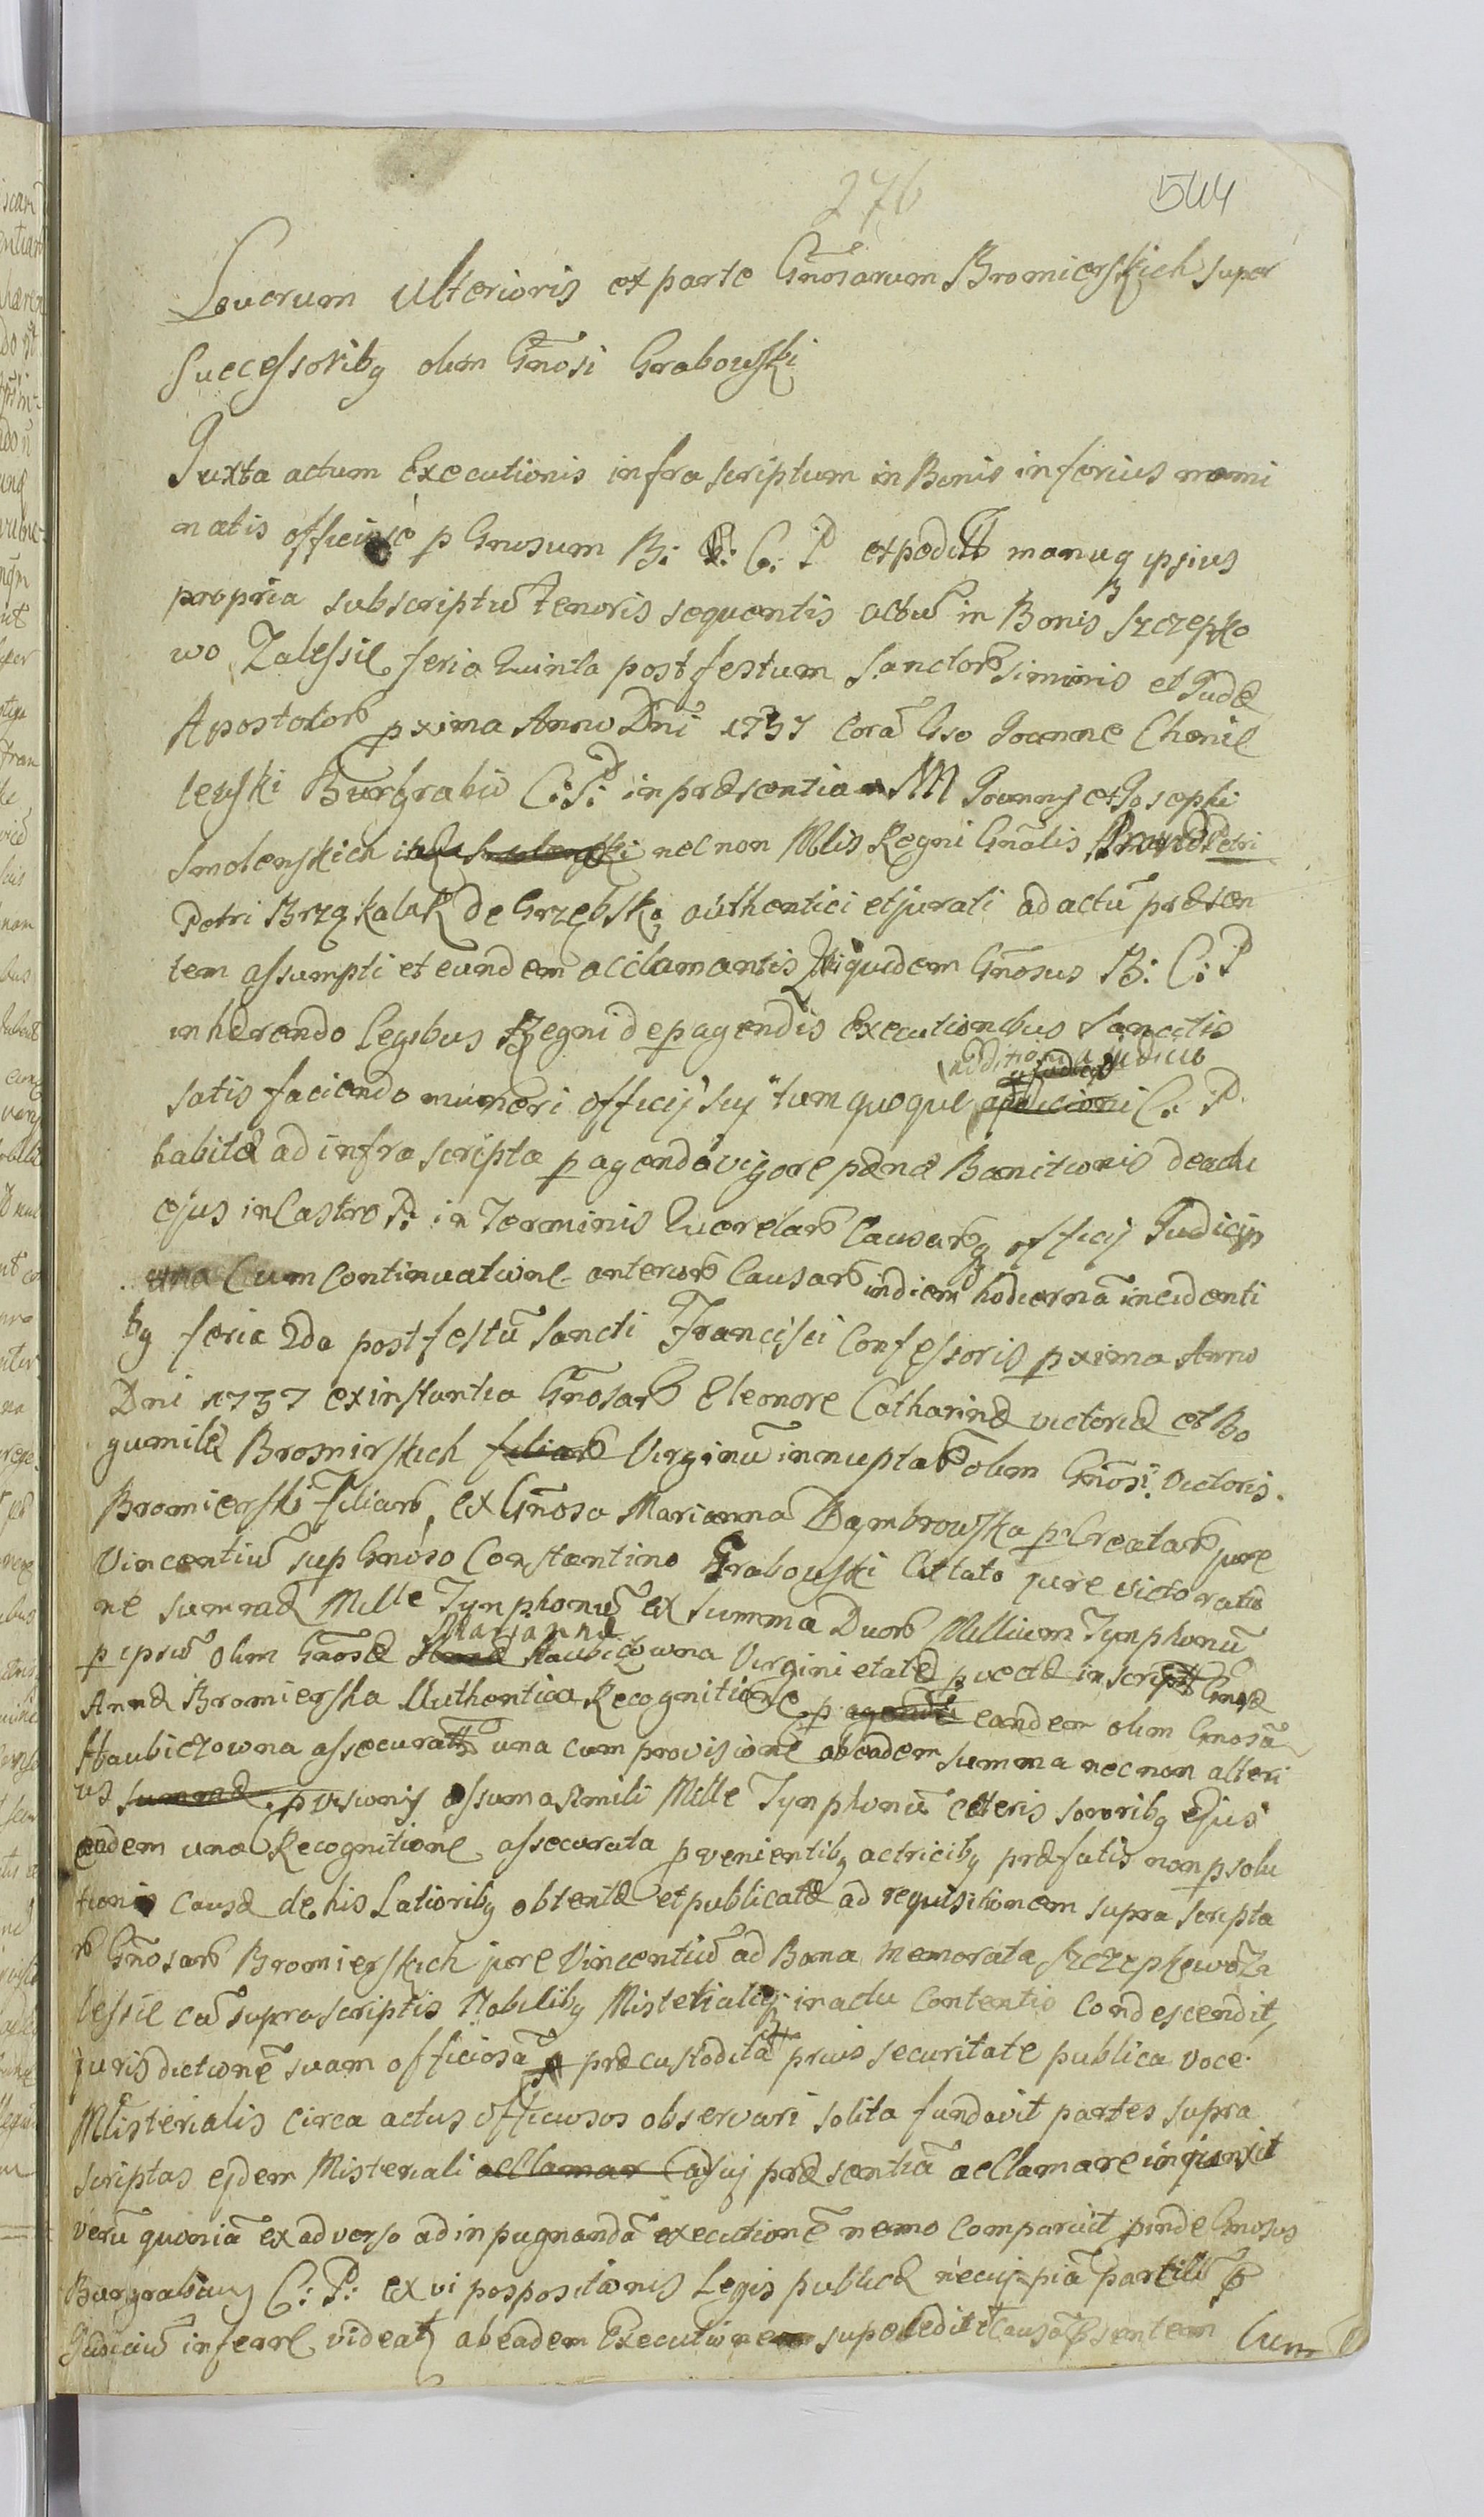 276 544
Lucrum Ulterioris ex parte Gnosarum Bromierskich super
Successoribg olim Gnosi Grabowski
Juxta actum Executionis infra scriptum in Bonis inferius nomi
natis officiose p Gnosum B: C: P expeditu manuq ipsius
propria subscriptu tenoris sequentis actu in Bonis Szczepko
wo Zalessie feria Quinta post festum Sanctorb Simonis et Judæ
Apostolorb pxima Anno Dni 1737 Corã Gso Joanne Chmie
lewski Burgrabio C: P: in præsentia M Joannis et Josephi
Smolenskich nec non Mlis Regni Gnalis Petri
Petri Brząkalak de Grzebsk authentici et jurati ad actu præsen
tem assumpti et eundem acclamantis Siquidem Gnosus B: C: P
inhærendo Legibus Regni de pagendis Executionibus Sancitis
additioni a judicio
satis faciendo muneri officij sui tum quoque C: P
habitæ ad infra scripta pagenda vigore pænæ Banitionis de actu
ejus in Castro P: in Terminis Querelarb Causarbq officij Judicij
una Cum Continuatione anteriorb Causarb in diem hodiernã incidenti
bg feria 2da post festũ Sancti Francisci Confessoris pxima Anno
Dni 1737 ex instantia Gnosarb Eleonore Catharinæ victoriæ et Bo
gumilæ Bromirskich filiarb Virginũ innuptarb olim Gnosi Victoris
Bromierski Filiarb, ex Gnosa Marianna Dąmbrowska pCreatarb jure
Vincentiũ sup Gnoso Constantino Grabowski Citato jure victo ratio
ne summæ Mille Tymphonũ ex summa Duorb Millium Tymphonũ
Marianna
p ipsũ olim Gnosæ Haubiczowna Virgini etatæ pvectæ inscript Gnosæ
Annæ Bromierska Authentica Recognitione p eandem olim Gnosã
Haubiczowna assecurat una cum provisione ab eadem summa nec non alteri
us summæ. pvisionis a summa simili Mille Tymphonũ ceteris sororibg ejus
eadem una Recognitione assecurata pvenientibg actricibg præfatis non psolu
tionis Causæ de his Latioribg obtentæ et publicatæ ad requisitionem supra scripta
rb Gnosarb Bromierskich jure Vincentiũ ad Bona memorata Szczepkowo Za
lessie cũ supra scriptis Nobilibg Misterialiq in actu Contentis Condescendit,
jurisdictionẽ suam officiosã præcustodita prius securitate publica voce
Misterialis circa actus officiosos observari solita fundavit partes supra
scriptas ejdem Misteriali acclamar ad suj præsentiã acclamare injunxit
verũ quoniã ex adverso ad inpugnandã executionẽ nemo Comparuit pinde Gnosus
Burgrabius C: P: ex vi pospositionis Legis publicæ necuj piã partiliũ p
Judiciũ inferre videat ab eadem Executione supersedit Causã psentem Cum